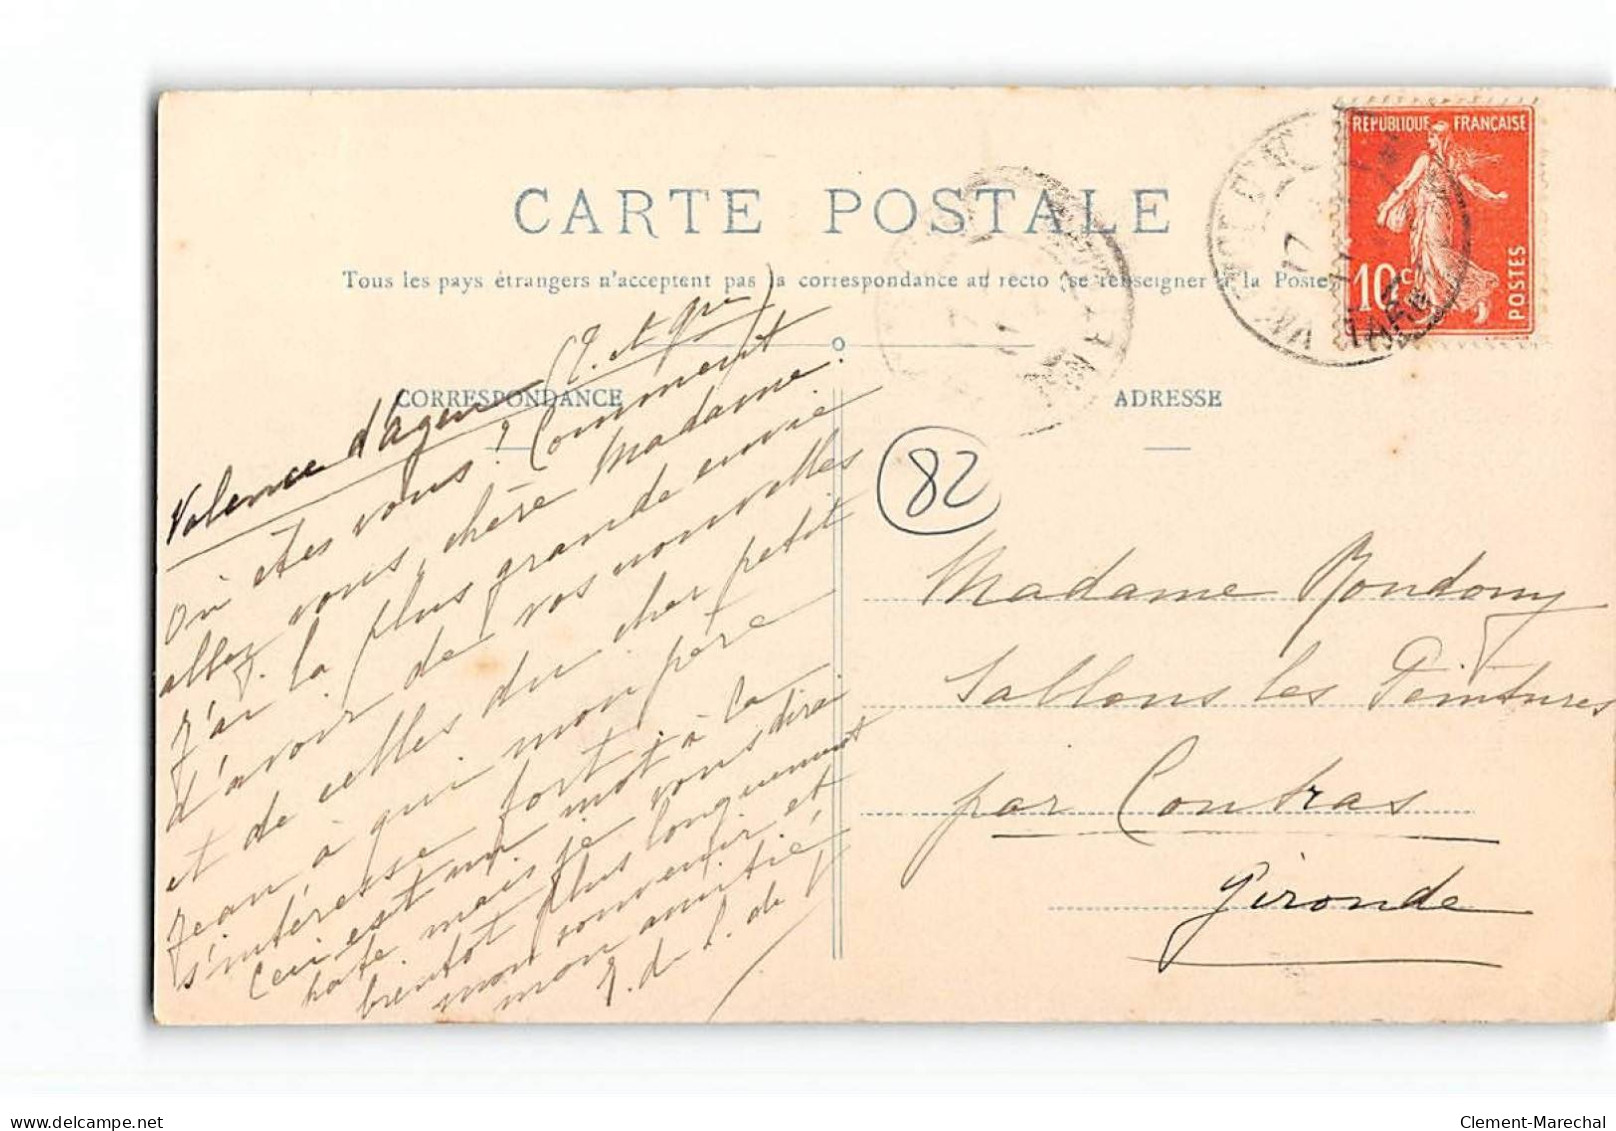 CARTE POSTALE
Tous les pays étrangers n'acceptent pas la correspondance au recto (se renseigner à la Poste)
CORRESPONDANCE
Valence d'Agen (T. et Gne)
Où êtes vous ? Comment
allez vous, chère Madame.
J'ai la plus grande envie
d'avoir de vos nouvelles
et de celles du cher petit
Jean à qui mon père
s'intéresse fort.
Ceci est un mot à la
hate mais je vous dirai
bientôt plus longuement
mon souvenir et
mon amitié
ADRESSE
82
Madame Rondony
Sablons les Peintures
par Coutras
Gironde
REPUBLIQUE FRANÇAISE
10 c
POSTES
delcampe.net
Clement-Marechal